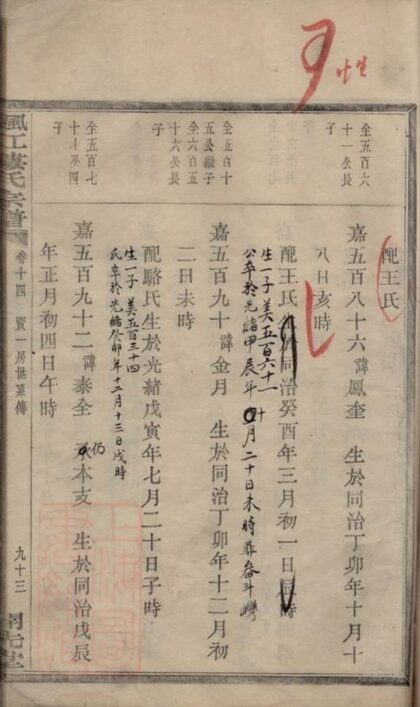 全五百六
十一公長
子
全五百十
五公繼子
全六百五
十六公長
子
全五百七
子
配王氏
嘉五百八十六 諱鳳奎 生於同治丁卯年十月十
八日亥時
配王氏生於同治癸酉年三月初一日辰時
生一子美五百六十一
公卒於光緒甲辰年 月二十日未時葬畚斗灣
嘉五百九十 諱金月 生於同治丁卯年十二月初
二日未時
配駱氏生於光緒戊寅年七月二十日子時
生一子美五百三十四
氏卒於光緒癸卯年十二月十三日戌時
嘉五百九十二 諱泰全 仍承本支 生於同治戊辰
年正月初四日午時
氏宗譜
卷十四 賢一房世系傳
九十三